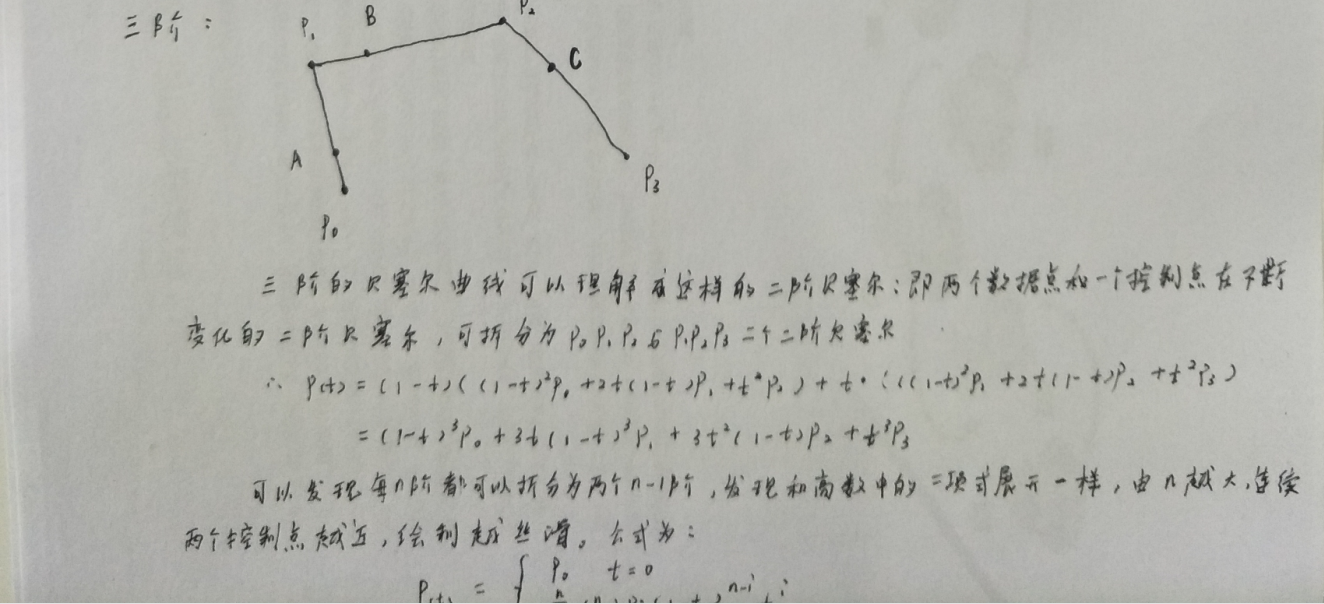 三阶：
P₁ B P₂
C
A
P₃
P₀
三阶的贝塞尔曲线可以理解成这样的二阶贝塞尔：即两个数据点和一个控制点在不断
变化的二阶贝塞尔，可拆分为P₀P₁P₂与P₁P₂P₃二个二阶贝塞尔
∴ P(t) = (1-t)((1-t)²P₀+2t(1-t)P₁+t²P₂) + t·(((1-t)²P₁+2t(1-t)P₂+t²P₃)
=(1-t)³P₀+3t(1-t)³P₁+3t²(1-t)P₂+t³P₃
可以发现每n阶都可以拆分为两个n-1阶，发现和高数中的二项式展开一样，由n越大，连续
两个控制点越近，绘制越丝滑。公式为：
P(t) = { P₀ t=0